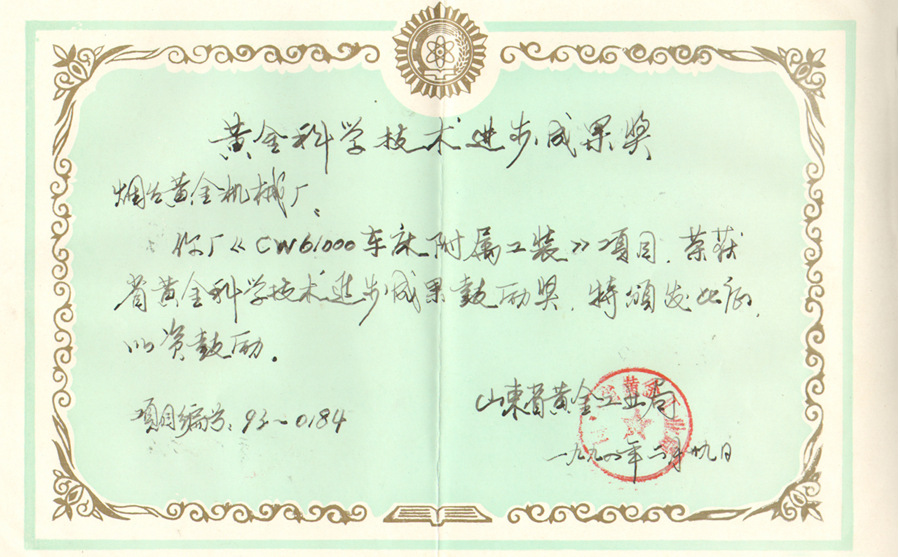 黄金科学技术进步成果奖
烟台黄金机械厂、
你厂《CW61000车床附属工装》项目，荣获
省黄金科学技术进步成果鼓励奖，特颁发此证，
以资鼓励。
项目编号：93-0184
山东省黄金工业局
一九九四年六月廿九日